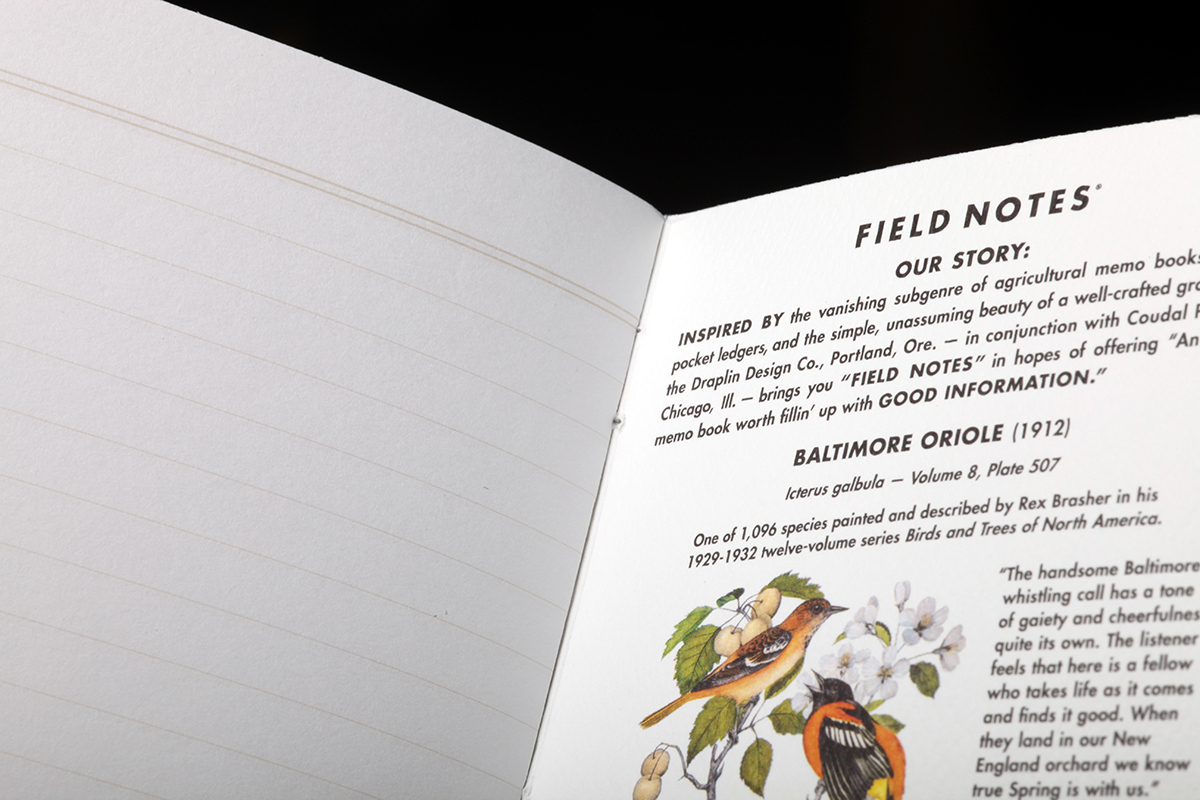 FIELD NOTES®
OUR STORY:
INSPIRED BY the vanishing subgenre of agricultural memo books
pocket ledgers, and the simple, unassuming beauty of a well-crafted
the Draplin Design Co., Portland, Ore. — in conjunction with Coudal
Chicago, Ill. — brings you “FIELD NOTES” in hopes of offering “An
memo book worth fillin’ up with GOOD INFORMATION.”
BALTIMORE ORIOLE (1912)
Icterus galbula — Volume 8, Plate 507
One of 1,096 species painted and described by Rex Brasher in his
1929-1932 twelve-volume series Birds and Trees of North America.
“The handsome Baltimore
whistling call has a tone
of gaiety and cheerfulnes
quite its own. The listener
feels that here is a fellow
who takes life as it comes
and finds it good. When
they land in our New
England orchard we know
true Spring is with us.”